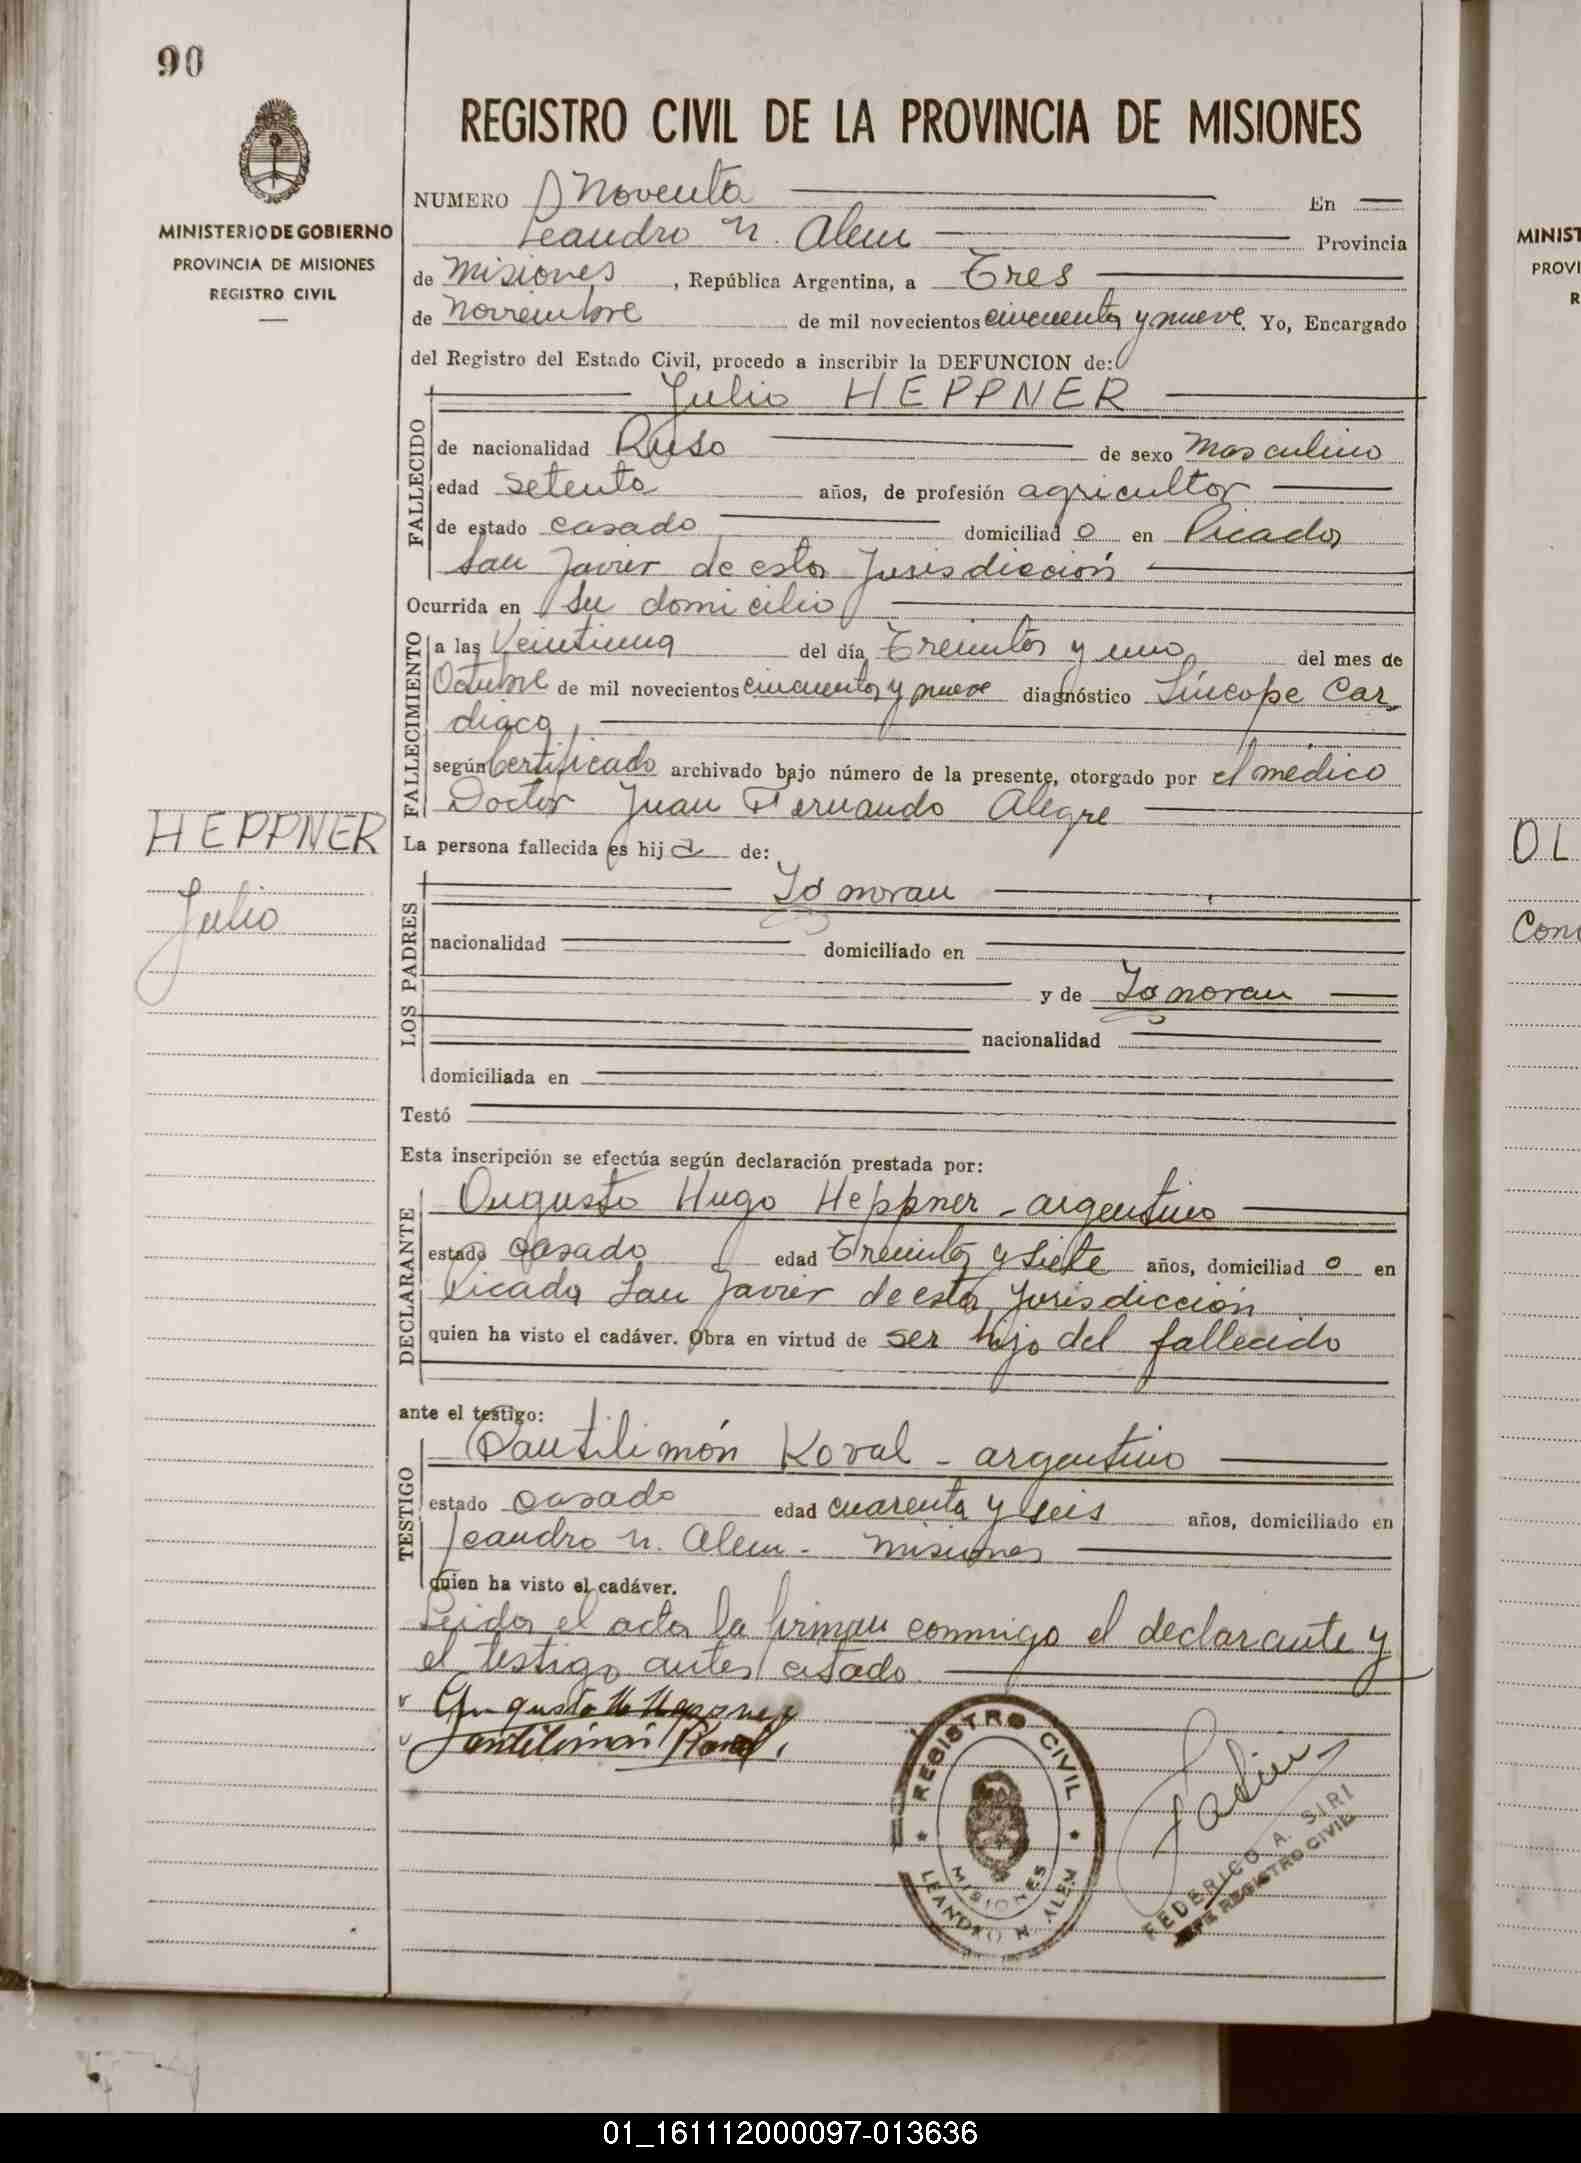 90
REGISTRO CIVIL DE LA PROVINCIA DE MISIONES
MINISTERIO DE GOBIERNO
PROVINCIA DE MISIONES
REGISTRO CIVIL
NUMERO Noventa En
Leandro N. Alem Provincia
de Misiones, República Argentina, a Tres
de Noviembre de mil novecientos cincuenta y nueve. Yo, Encargado
del Registro del Estado Civil, procedo a inscribir la DEFUNCION de:
Julio HEPPNER
FALLECIDO
de nacionalidad Ruso de sexo Masculino
edad setenta años, de profesión agricultor
de estado casado domiciliad o en Picada
San Javier de esta Jurisdicción
Ocurrida en su domicilio
FALLECIMIENTO
a las Veintiuna del día Treinta y uno del mes de
Octubre de mil novecientos cincuenta y nueve diagnóstico Síncope Car-
diaco
según Certificado archivado bajo número de la presente, otorgado por el médico
Doctor Juan Fernando Alegre
HEPPNER
Julio
La persona fallecida es hij o de:
LOS PADRES
Ignoran
nacionalidad domiciliado en
y de Ignoran
nacionalidad
domiciliada en
Testó
Esta inscripción se efectúa según declaración prestada por:
DECLARANTE
Augusto Hugo Heppner - argentino
estado casado edad Treinta y siete años, domiciliad o en
Picada San Javier de esta Jurisdicción
quien ha visto el cadáver. Obra en virtud de ser hijo del fallecido
ante el testigo:
TESTIGO
Pantilimón Koval - argentino
estado casado edad cuarenta y seis años, domiciliado en
Leandro N. Alem - Misiones
quien ha visto el cadáver.
Leida el acta la firman conmigo el declarante y
el testigo antes citado
Augusto H Heppner
Pantilimón Koval
REGISTRO CIVIL
MISIONES
LEANDRO N. ALEM
FEDERICO A. SIRI
JEFE REGISTRO CIVIL
MINIST
PROVI
R
OL
Con
01_161112000097-013636